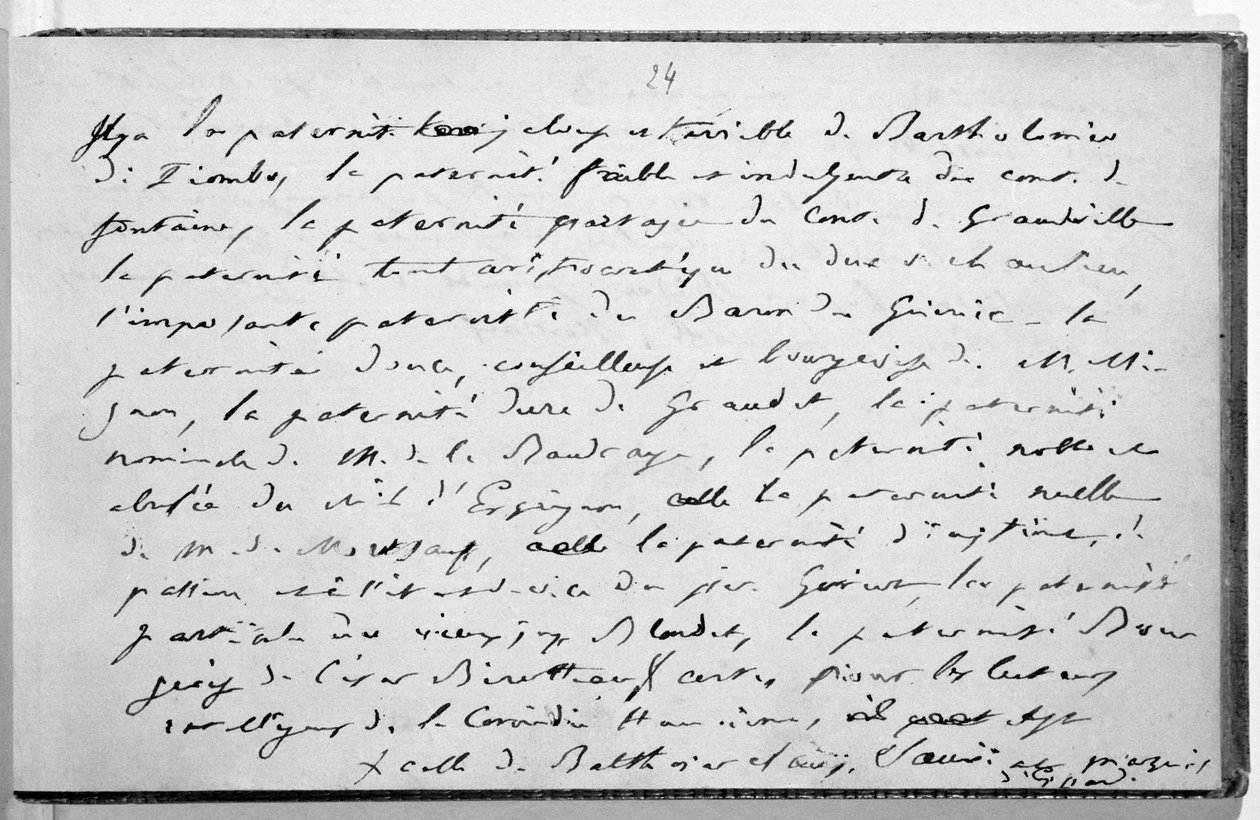 24
Il y a la paternité jalouse et terrible de Bartholomeo
di Piombo, la paternité faible et indulgente du comte de
fontaine, la paternité partagée du Comte de Grandville
la paternité tout aristocratique du duc de chaulieu,
l'imposante paternité du Baron du Guénic – la
paternité douce, conseilleuse et bourgeoise de M. Mi-
gnon, la paternité dure de Grandet, la paternité
nominale de M. de la Baudraye, la paternité noble et
abusée du Mis d'Esgrignon, celle la paternité muette
de M. de Mortsauf, celle la paternité d'instinct, de
passion et à l'état de vice du père Goriot, la paternité
partiale du vieux juge Blondet, la paternité Bour
geoise de César Birotteau certes, pour les lecteurs
intelligens de la Comédie Humaine,
X celle de Balthazar Claës,